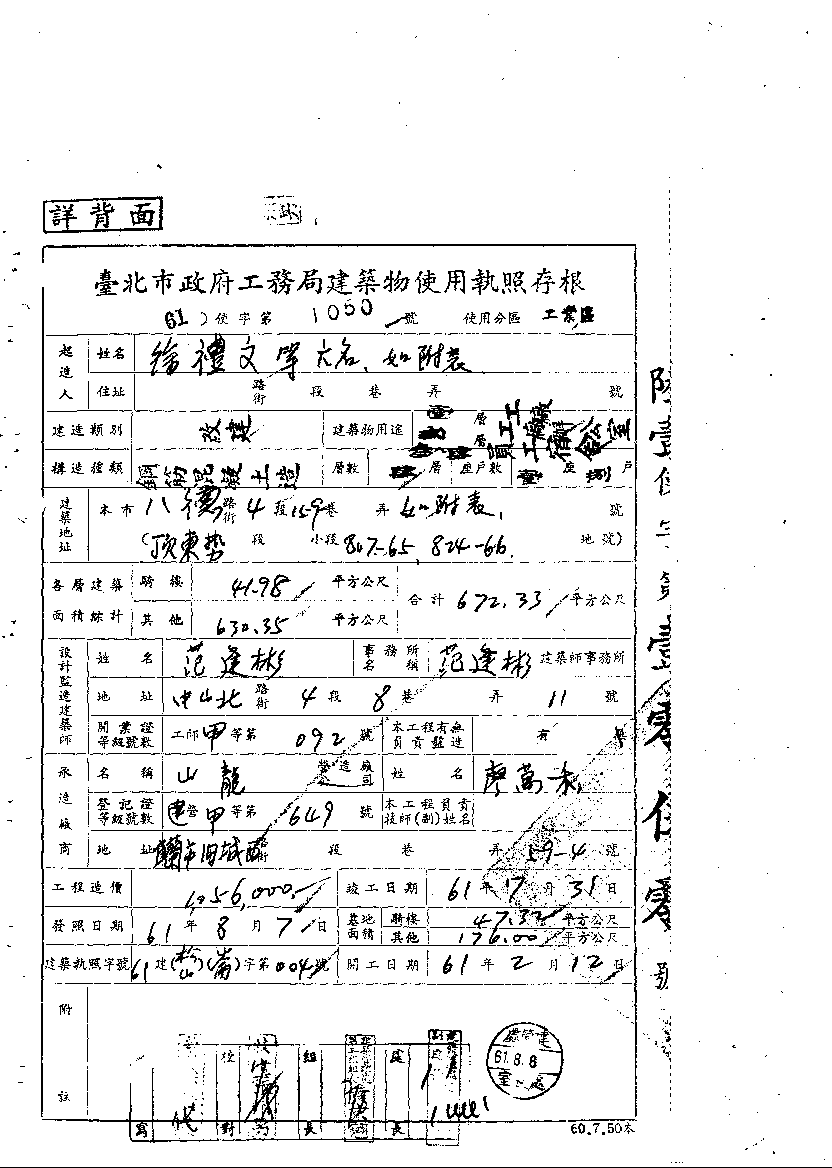 詳背面
臺北市政府工務局建築物使用執照存根
61)使字第 1050 號 使用分區 工業區
起造人 姓名 徐禮文等六名、如附表
住址 路街 段 巷 弄 號
建造類別 改建 建築物用途 層 層 員工工廠 宿舍
構造種類 鋼筋混凝土造 層數 層 座戶數 座 捌 戶
建築地址 本市 八德 路街 4 段 159 巷 弄 如附表 號
(頂東勢 段 小段 807-65 824-66 地號)
各層建築面積綜計 騎樓 41.98 平方公尺 合計 672.33 平方公尺
其他 630.35 平方公尺
設計監造建築師 姓名 范建彬 事務所名稱 范建彬 建築師事務所
地址 中山北 路街 4 段 8 巷 弄 11 號
開業證等級號數 工師 甲 等第 092 號 本工程有無負責監造 有
承造廠商 名稱 山龍 營造廠公司 姓名 廖萬
登記證等級號數 營 甲 等第 649 號 本工程負責技師(副)姓名
地址 段 巷 弄 59-4 號
工程造價 1,056,000 竣工日期 61 年 7 月 31 日
發照日期 61 年 8 月 7 日 基地面積 騎樓 47.32 平方公尺
其他 176.00 平方公尺
建築執照字號 61 建(松山)(崙)字第 004 號 開工日期 61 年 2 月 12 日
附註
寫 校對 組長 處長
61.8.8
60.7.50本
陸壹使字第壹零伍零號